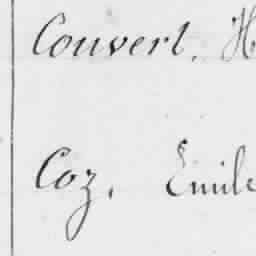 Couvert, H
Coz, Emile